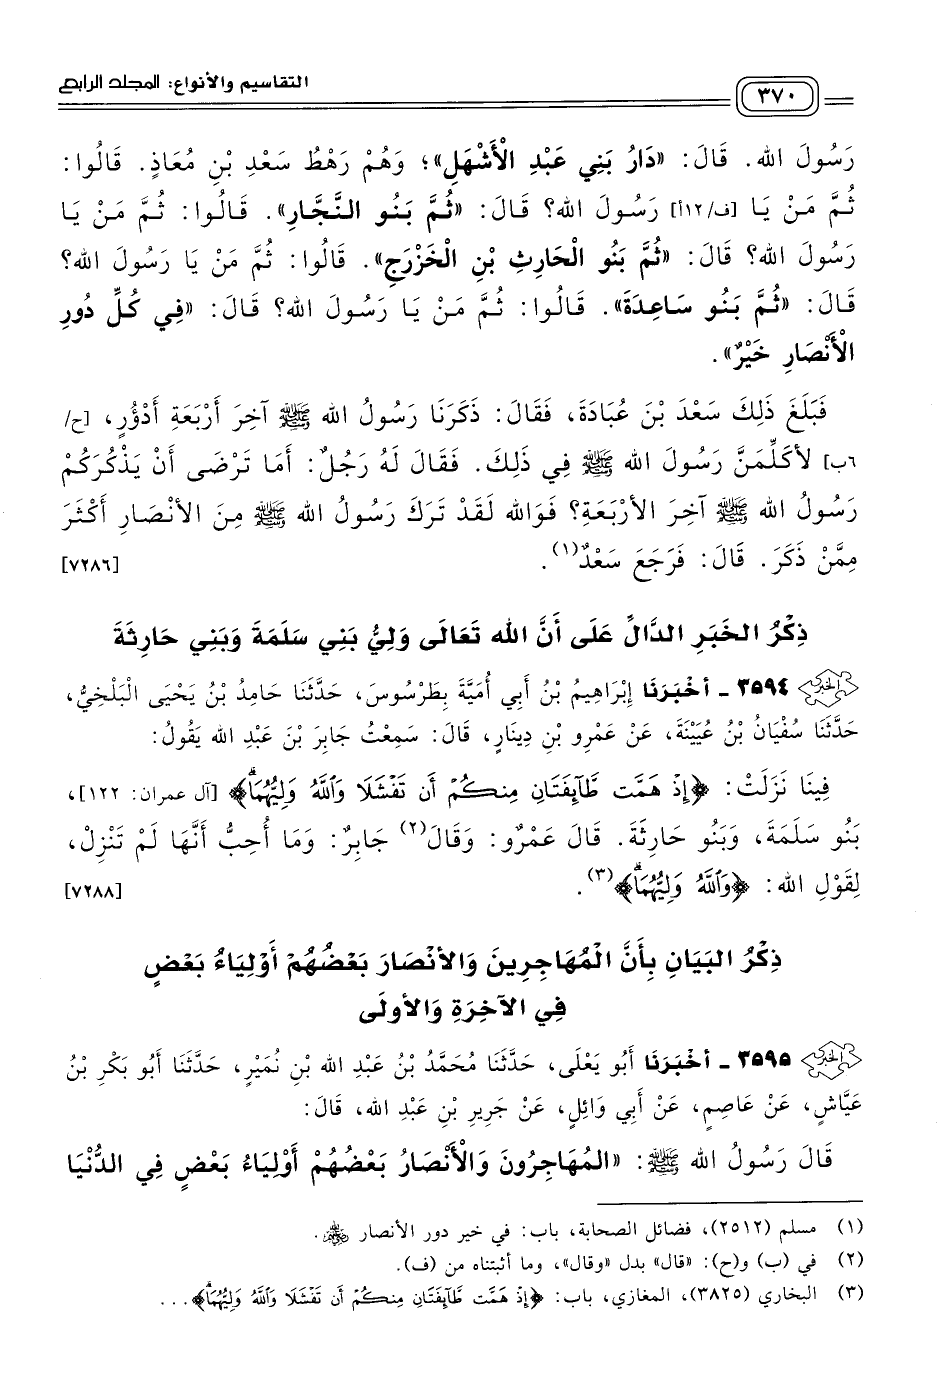 ٣٧٠ التقاسيم والأنواع: المجلد الرابع
رَسُولَ الله. قَالَ: «دَارُ بَنِي عَبْدِ الْأَشْهَلِ»؛ وَهُمْ رَهْطُ سَعْدِ بْنِ مُعَاذٍ. قَالُوا:
ثُمَّ مَنْ يَا [ف/١٢أ] رَسُولَ الله؟ قَالَ: «ثُمَّ بَنُو النَّجَّارِ». قَالُوا: ثُمَّ مَنْ يَا
رَسُولَ الله؟ قَالَ: «ثُمَّ بَنُو الْحَارِثِ بْنِ الْخَزْرَجِ». قَالُوا: ثُمَّ مَنْ يَا رَسُولَ الله؟
قَالَ: «ثُمَّ بَنُو سَاعِدَةَ». قَالُوا: ثُمَّ مَنْ يَا رَسُولَ الله؟ قَالَ: «فِي كُلِّ دُورِ
الْأَنْصَارِ خَيْرٌ».
فَبَلَغَ ذَلِكَ سَعْدَ بْنَ عُبَادَةَ، فَقَالَ: ذَكَرَنَا رَسُولُ الله ﷺ آخِرَ أَرْبَعَةِ أَدْؤُرٍ، [ح/
٦ب] لأكَلِّمَنَّ رَسُولَ الله ﷺ فِي ذَلِكَ. فَقَالَ لَهُ رَجُلٌ: أَمَا تَرْضَى أَنْ يَذْكُرَكُمْ
رَسُولُ الله ﷺ آخِرَ الأَرْبَعَةِ؟ فَوَالله لَقَدْ تَرَكَ رَسُولُ الله ﷺ مِنَ الأَنْصَارِ أَكْثَرَ
مِمَّنْ ذَكَرَ. قَالَ: فَرَجَعَ سَعْدٌ(١). [٧٢٨٦]
ذِكْرُ الخَبَرِ الدَّالِّ عَلَى أَنَّ الله تَعَالَى وَلِيُّ بَنِي سَلَمَةَ وَبَنِي حَارِثَةَ
٣٥٩٤ ـ أَخْبَرَنَا إِبْرَاهِيمُ بْنُ أَبِي أُمَيَّةَ بِطَرْسُوسَ، حَدَّثَنَا حَامِدُ بْنُ يَحْيَى الْبَلْخِيُّ،
حَدَّثَنَا سُفْيَانُ بْنُ عُيَيْنَةَ، عَنْ عَمْرِو بْنِ دِينَارٍ، قَالَ: سَمِعْتُ جَابِرَ بْنَ عَبْدِ الله يَقُولُ:
فِينَا نَزَلَتْ: ﴿إِذْ هَمَّت طَّآئِفَتَانِ مِنكُمْ أَن تَفْشَلَا وَٱللَّهُ وَلِيُّهُمَا﴾ [آل عمران: ١٢٢]،
بَنُو سَلَمَةَ، وَبَنُو حَارِثَةَ. قَالَ عَمْرٌو: وَقَالَ(٢) جَابِرٌ: وَمَا أُحِبُّ أَنَّهَا لَمْ تَنْزِلْ،
لِقَوْلِ الله: ﴿وَٱللَّهُ وَلِيُّهُمَا﴾(٣). [٧٢٨٨]
ذِكْرُ البَيَانِ بِأَنَّ الْمُهَاجِرِينَ وَالأَنْصَارَ بَعْضُهُمْ أَوْلِيَاءُ بَعْضٍ
فِي الآخِرَةِ وَالأُولَى
٣٥٩٥ ـ أَخْبَرَنَا أَبُو يَعْلَى، حَدَّثَنَا مُحَمَّدُ بْنُ عَبْدِ الله بْنِ نُمَيْرٍ، حَدَّثَنَا أَبُو بَكْرِ بْنُ
عَيَّاشٍ، عَنْ عَاصِمٍ، عَنْ أَبِي وَائِلٍ، عَنْ جَرِيرِ بْنِ عَبْدِ الله، قَالَ:
قَالَ رَسُولُ الله ﷺ: «الْمُهَاجِرُونَ وَالْأَنْصَارُ بَعْضُهُمْ أَوْلِيَاءُ بَعْضٍ فِي الدُّنْيَا
(١) مسلم (٢٥١٢)، فضائل الصحابة، باب: في خير دور الأنصار.
(٢) في (ب) و(ح): «قال» بدل «وقال»، وما أثبتناه من (ف).
(٣) البخاري (٣٨٢٥)، المغازي، باب: ﴿إِذْ هَمَّت طَّآئِفَتَانِ مِنكُمْ أَن تَفْشَلَا وَٱللَّهُ وَلِيُّهُمَا﴾...